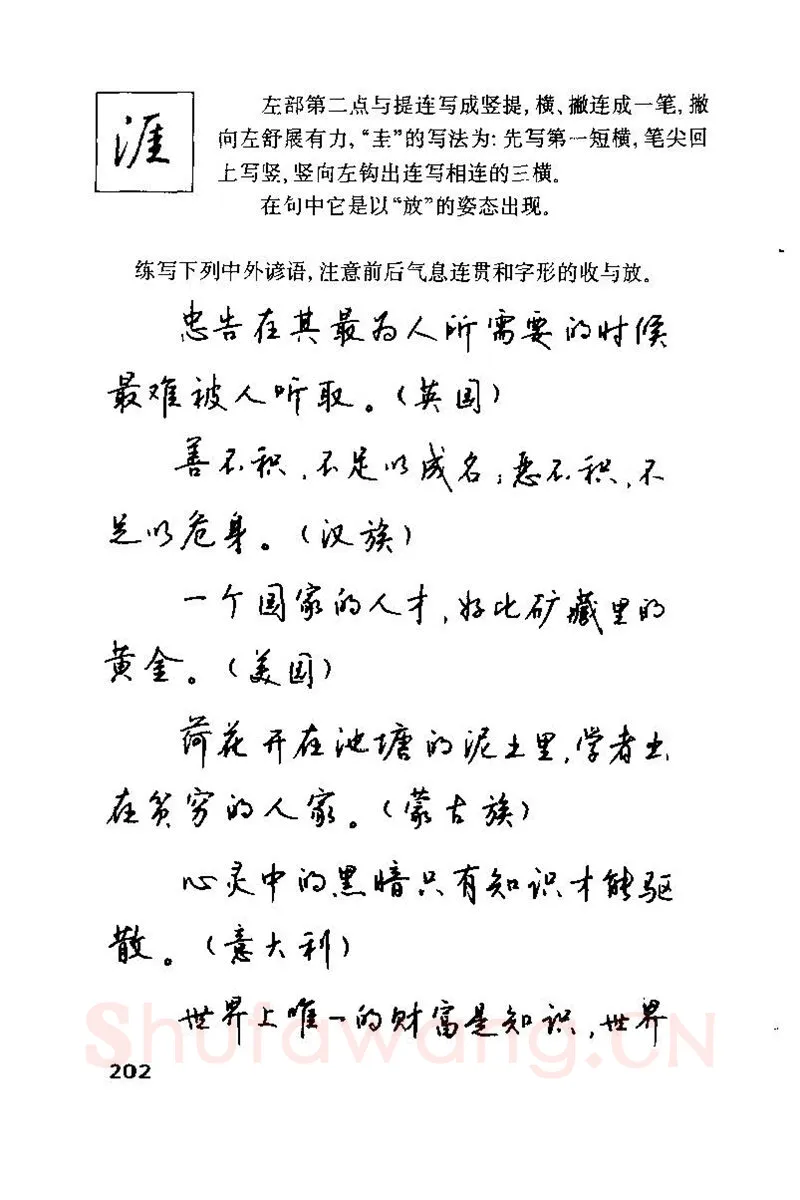 涯
左部第二点与提连写成竖提,横、撇连成一笔,撇
向左舒展有力,“圭”的写法为:先写第一短横,笔尖回
上写竖,竖向左钩出连写相连的三横。
在句中它是以“放”的姿态出现。
练写下列中外谚语,注意前后气息连贯和字形的收与放。
忠告在其最为人所需要的时候
最难被人听取。(英国)
善不积,不足以成名;恶不积,不
足以危身。(汉族)
一个国家的人才,好比矿藏里的
黄金。(美国)
荷花开在池塘的泥土里,学者出
在贫穷的人家。(蒙古族)
心灵中的黑暗只有知识才能驱
散。(意大利)
世界上唯一的财富是知识,世界
Shufawang.CN
202